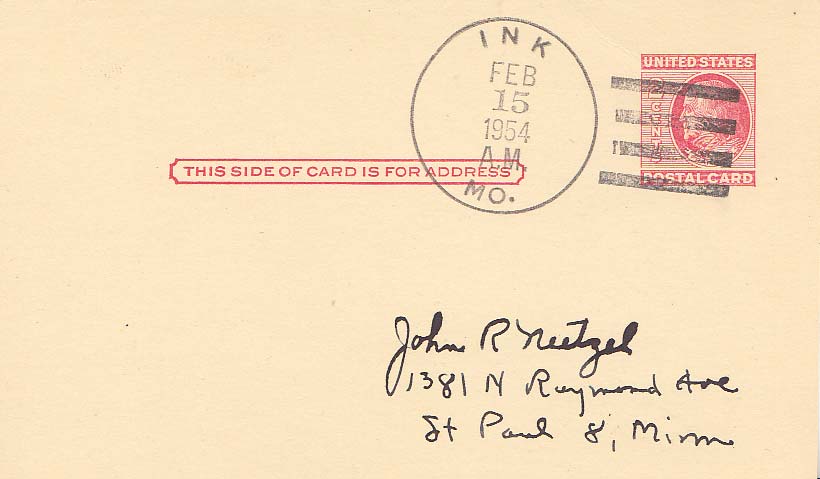 INK
FEB
15
1954
A.M.
MO.
UNITED STATES
2 CENTS
POSTAL CARD
THIS SIDE OF CARD IS FOR ADDRESS
John R Neetzel
1381 N Raymond Ave
St Paul 8, Minn